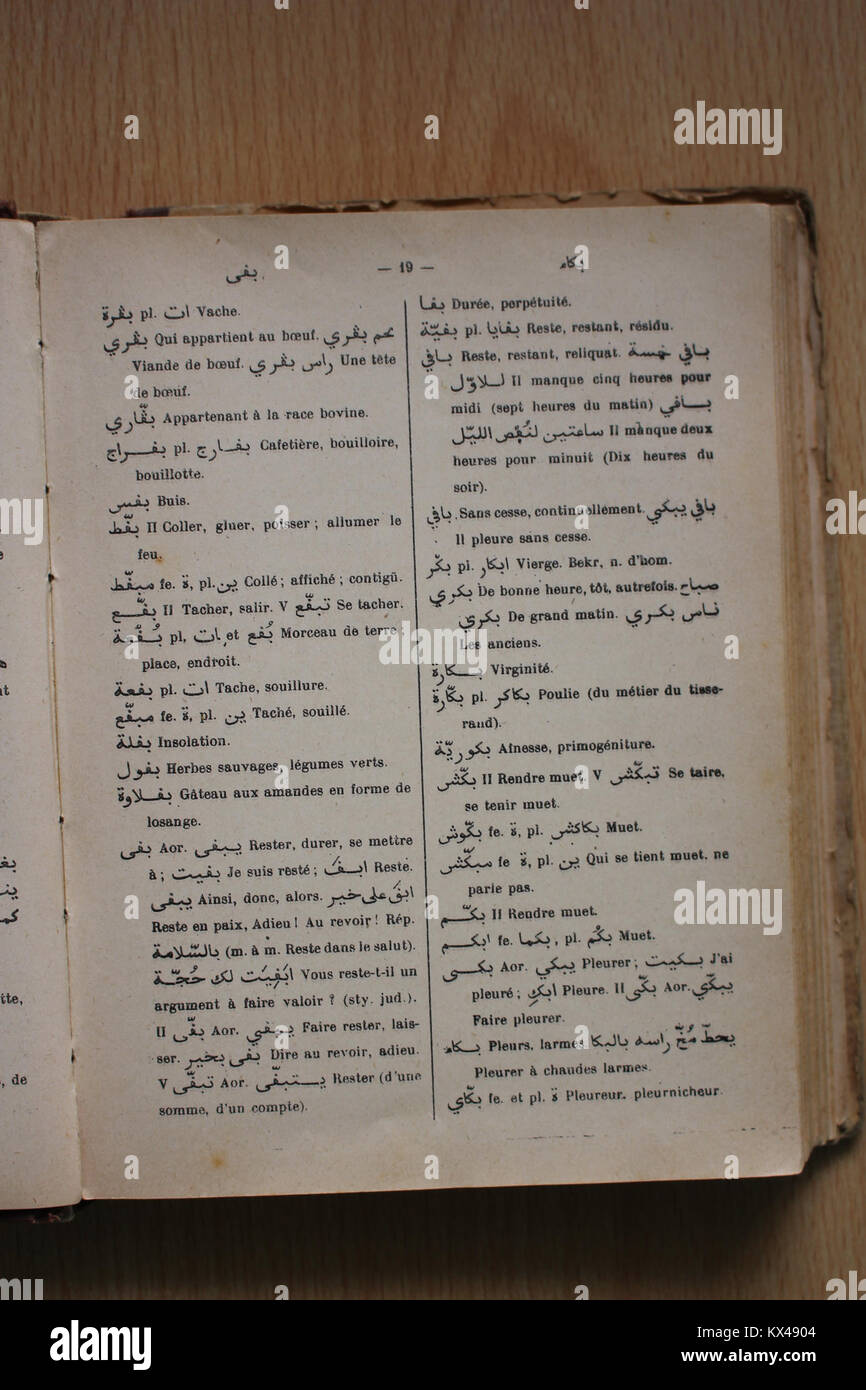 بفى
— 19 —
بكاء
بڨرة pl. ات Vache.
بڨري Qui appartient au bœuf. لحم بڨري
Viande de bœuf. راس بڨري Une tête
de bœuf.
بڨّاري Appartenant à la race bovine.
بفراج pl. بفارج Cafetière, bouilloire,
bouillotte.
بفس Buis.
بفّط II Coller, gluer, poisser ; allumer le
feu.
مبفّط fe. ة, pl. ين Collé ; affiché ; contigü.
بفّع II Tacher, salir. V تبفّع Se tacher.
بُفْعة pl, ات et بُفع Morceau de terre ;
place, endroit.
بفعة pl. ات Tache, souillure.
مبفّع fe. ة, pl. ين Taché, souillé.
بفلة Insolation.
بفول Herbes sauvages, légumes verts.
بفلاوة Gâteau aux amandes en forme de
losange.
بفى Aor. يبفى Rester, durer, se mettre
à ; بفيت Je suis resté ; ابفَ Reste.
يبفى Ainsi, donc, alors. ابق على خير
Reste en paix, Adieu ! Au revoir ! Rép.
بالسّلامة (m. à m. Reste dans le salut).
ابْفِيَت لك حُجّة Vous reste-t-il un
argument à faire valoir ? (sty. jud.).
II بفّى Aor. يبفي Faire rester, lais-
ser. بفى بخير Dire au revoir, adieu.
V تبفّى Aor. يستبفّى Rester (d'une
somme, d'un compte).
بفا Durée, perpétuité.
بفيّة pl. بفايا Reste, restant, résidu.
بافي Reste, restant, reliquat. بافي خمسة
للاوّل Il manque cinq heures pour
midi (sept heures du matin) بافي
ساعتين لنُفْص الليّل Il manque deux
heures pour minuit (Dix heures du
soir).
بافي Sans cesse, continuellement. بافي يبكي
Il pleure sans cesse.
بكْر pl. ابكار Vierge. Bekr, n. d'hom.
بكري De bonne heure, tôt, autrefois. صباح
بكري De grand matin. ناس بكري
Les anciens.
بكارة Virginité.
بكّارة pl. بكاكر Poulie (du métier du tisse-
rand).
بكوريّة Aînesse, primogéniture.
بكّش II Rendre muet, V تبكّش Se taire,
se tenir muet.
بكّوش fe. ة, pl. بكاكش Muet.
مبكّش fe ة, pl. ين Qui se tient muet, ne
parle pas.
بكّم II Rendre muet.
ابكم fe. بكما, pl. بكْم Muet.
بكى Aor. يبكي Pleurer ; بكيت J'ai
pleuré ; ابكِ Pleure. II بكّى Aor. يبكّي
Faire pleurer.
بكاء Pleurs, larmes يحطّ مُخّ راسه بالبكا
Pleurer à chaudes larmes.
بكّاي fe. et pl. ة Pleureur, pleurnicheur
tte,
, de
alamy
alamy
alamy
alamy
Image ID: KX4904
www.alamy.com